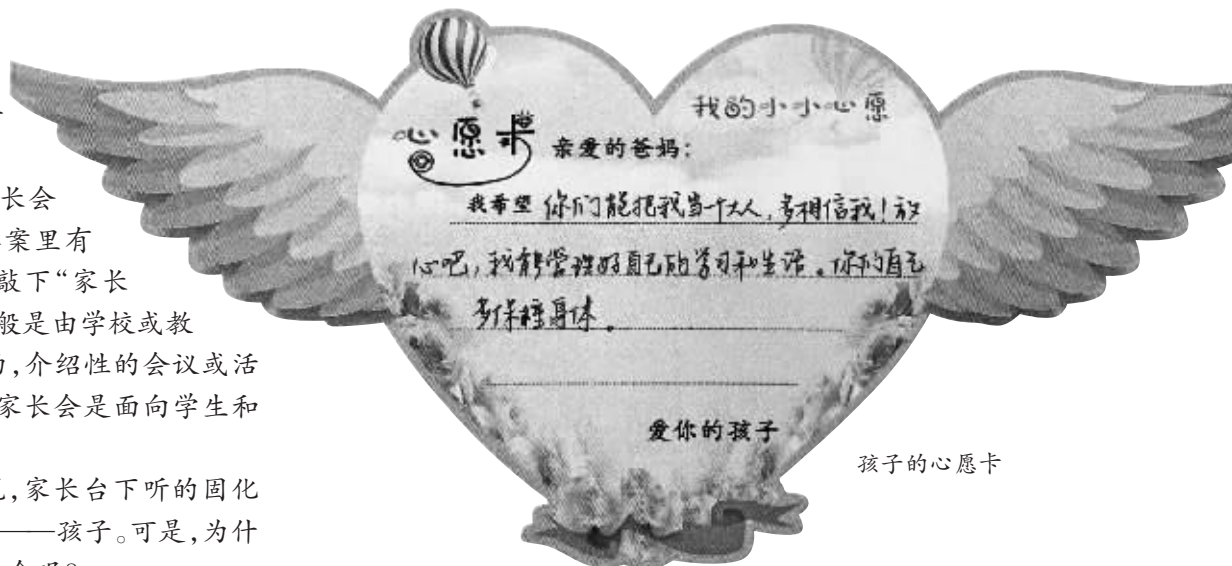 长会
案里有
敲下“家长
般是由学校或教
,介绍性的会议或活
家长会是面向学生和
,家长台下听的固化
——孩子。可是,为什
心愿卡
我的小小心愿
亲爱的爸妈:
我希望 你们能把我当个大人,多相信我!放
心吧,我能管理好自己的学习和生活。你们自己
多保重身体。
爱你的孩子
孩子的心愿卡